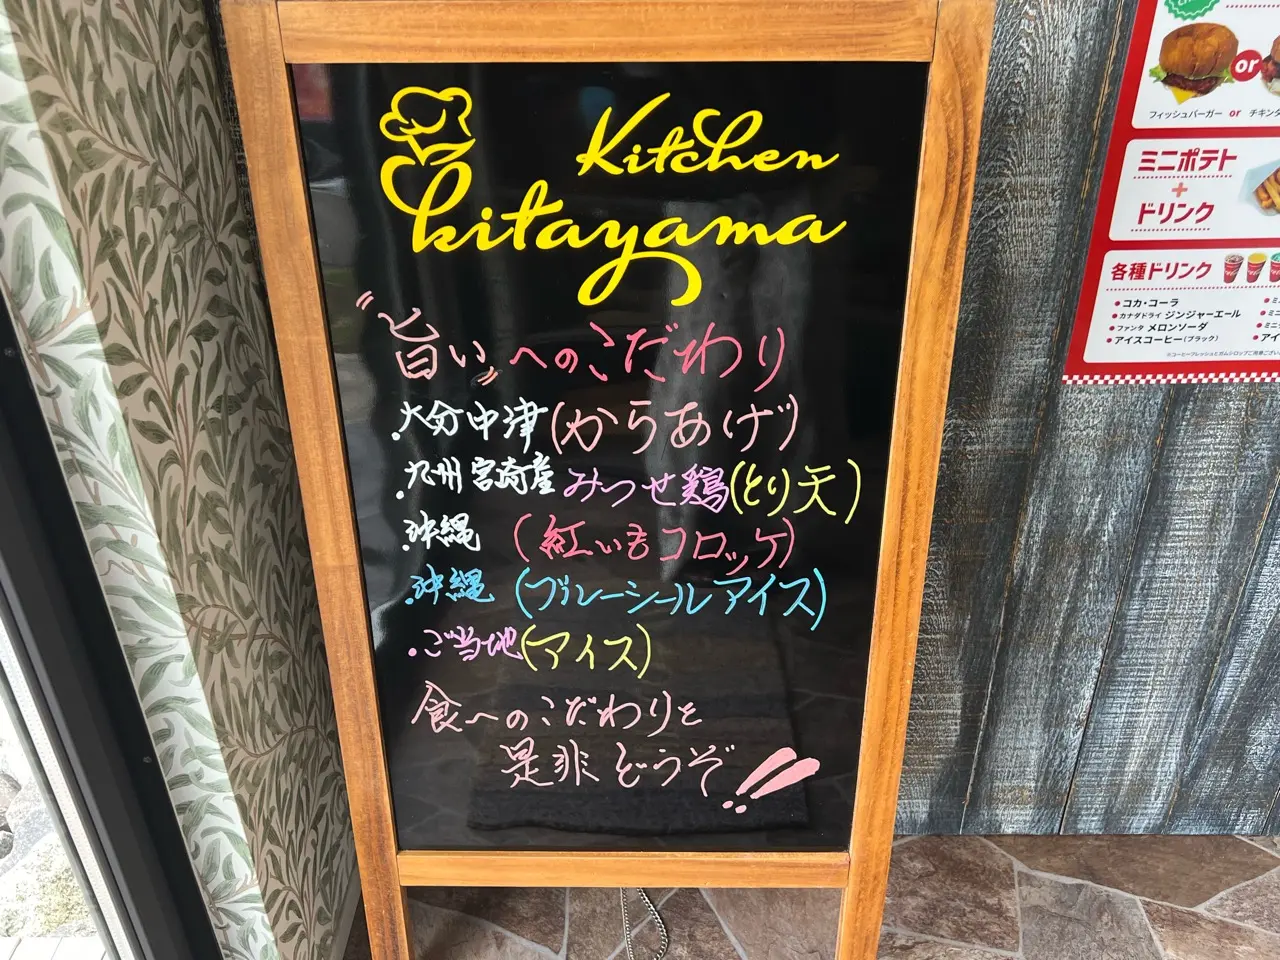 Kitchen
kitayama
"旨い"へのこだわり
・大分中津(からあげ)
・九州宮崎産 みつせ鶏(とり天)
・沖縄 (紅いもコロッケ)
・沖縄 (ブルーシールアイス)
・ご当地(アイス)
食へのこだわりを
是非どうぞ!!
or
フィッシュバーガー or チキンタ
ミニポテト
+
ドリンク
各種ドリンク
●コカ・コーラ
●カナダドライ ジンジャーエール
●ファンタ メロンソーダ
●アイスコーヒー(ブラック)